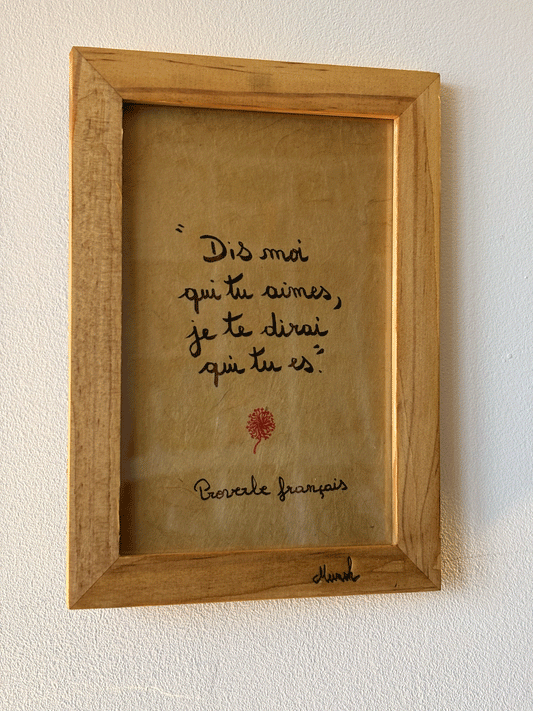 "Dis moi
qui tu aimes,
je te dirai
qui tu es".
Proverbe français